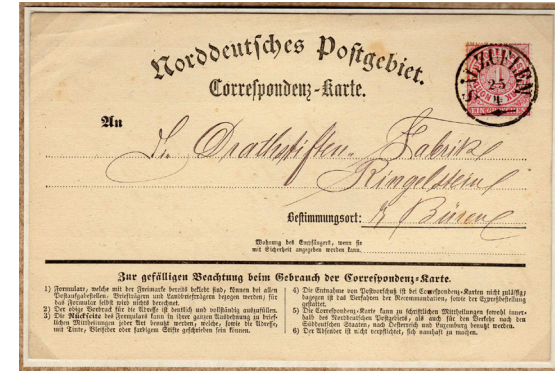 Norddeutsches Postgebiet.
Correspondenz-Karte.
SALZUFLEN
25
4
1
EIN GROSCHEN
An
d. Drathstiften-Fabrik
Ringelstein
Bestimmungsort: b/ Büren
Wohnung des Empfängers, wenn sie
mit Sicherheit angegeben werden kann.
Zur gefälligen Beachtung beim Gebrauch der Correspondenz-Karte.
1) Formulare, welche mit der Freimarke bereits beklebt sind, können bei allen
Postaufgabestellen, Briefträgern und Landbriefträgern bezogen werden; für
das Formular selbst wird nichts berechnet.
2) Der obige Vordruck für die Adresse ist deutlich und vollständig auszufüllen.
3) Die Rückseite des Formulars kann in ihrer ganzen Ausdehnung zu brief-
lichen Mittheilungen jeder Art benutzt werden, welche, sowie die Adresse,
mit Tinte, Bleifeder oder farbigem Stifte geschrieben sein können.
4) Die Entnahme von Postvorschuß ist bei Correspondenz-Karten nicht zulässig;
dagegen ist das Verfahren der Recommandation, sowie der Expreßbestellung
gestattet.
5) Die Correspondenz-Karte kann zu schriftlichen Mittheilungen sowohl inner-
halb des Norddeutschen Postgebiets, als auch für den Verkehr nach den
Süddeutschen Staaten, nach Oesterreich und Luxemburg benutzt werden.
6) Der Absender ist nicht verpflichtet, sich namhaft zu machen.